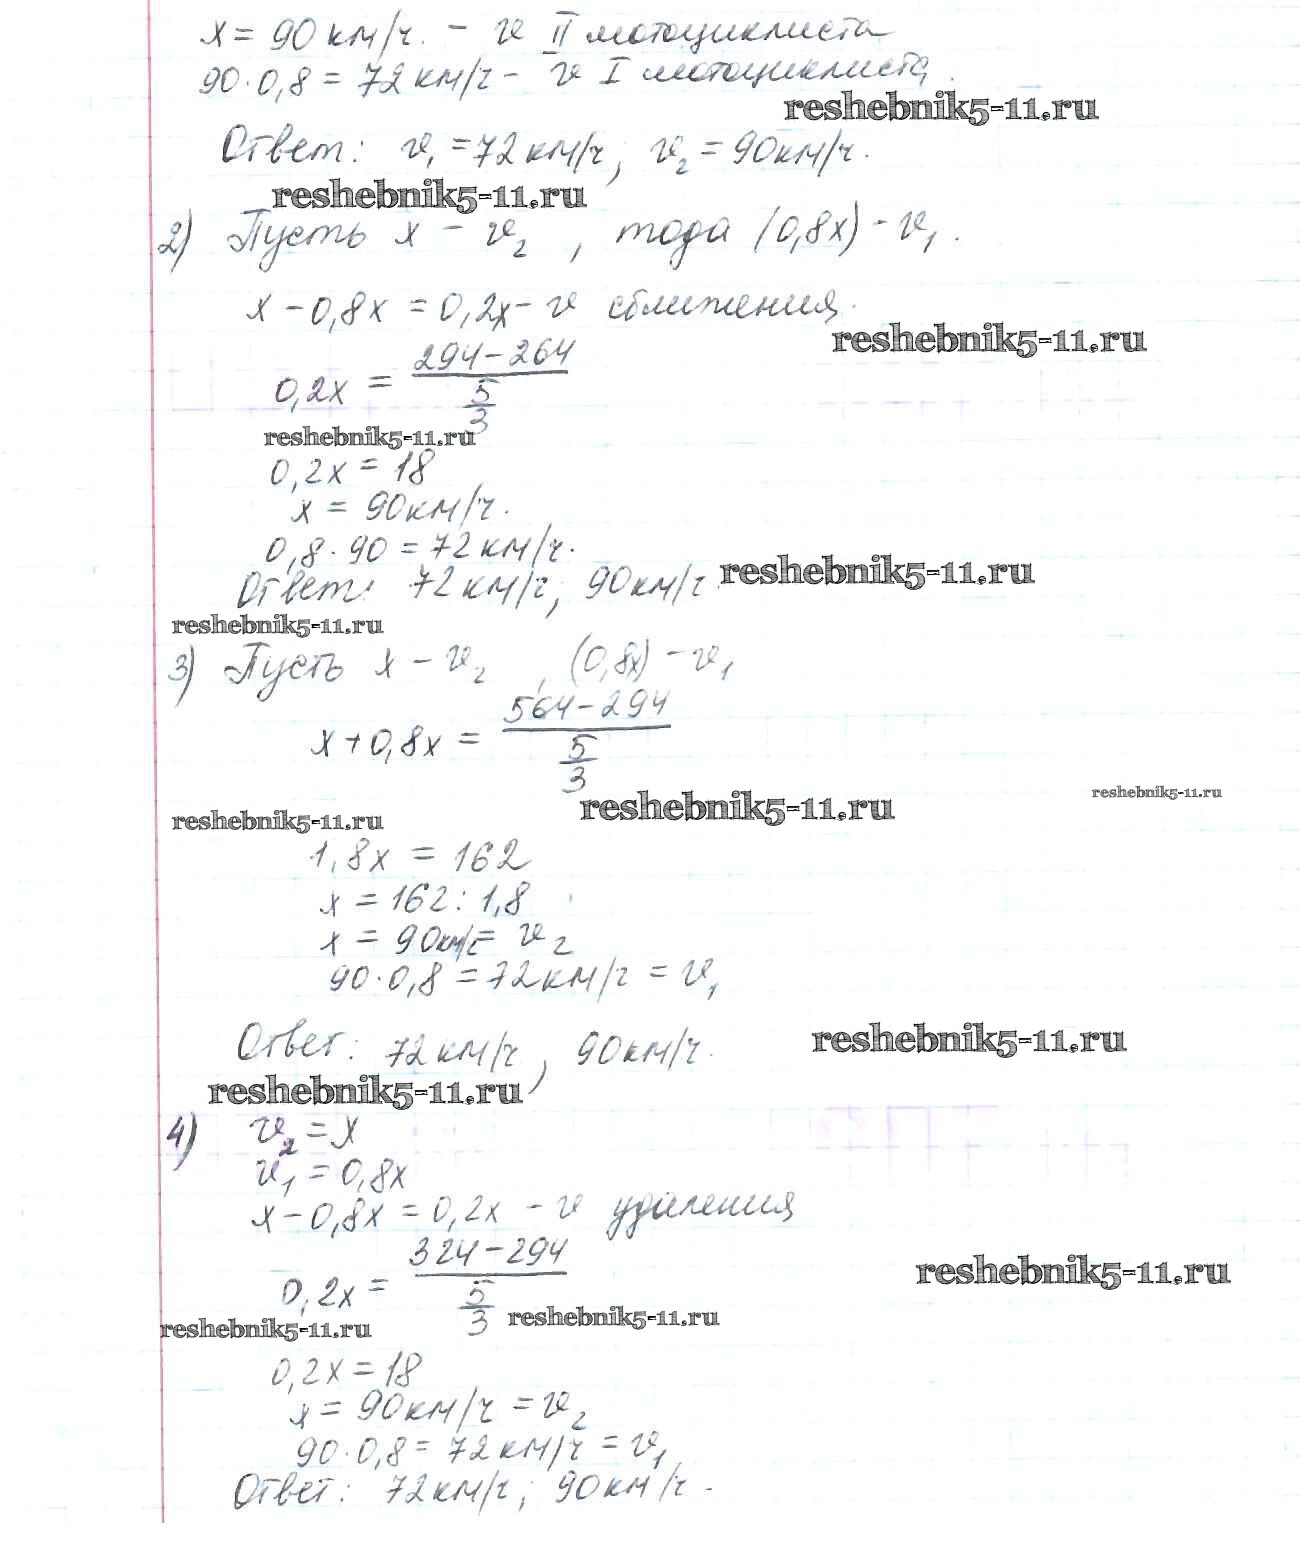 x = 90 км/ч. - v II мотоциклиста
90·0,8 = 72 км/ч - v I мотоциклиста.
reshebnik5-11.ru
Ответ: v₁ = 72 км/ч, v₂ = 90 км/ч.
reshebnik5-11.ru
2) Пусть x - v₂, тода (0,8x) - v₁.
x - 0,8x = 0,2x - v сближения.
reshebnik5-11.ru
0,2x = (294 - 264) / (5/3)
reshebnik5-11.ru
0,2x = 18
x = 90 км/ч.
0,8·90 = 72 км/ч.
Ответ: 72 км/ч, 90 км/ч
reshebnik5-11.ru
reshebnik5-11.ru
3) Пусть x - v₂, (0,8x) - v₁
x + 0,8x = (564 - 294) / (5/3)
reshebnik5-11.ru
reshebnik5-11.ru
reshebnik5-11.ru
1,8x = 162
x = 162 : 1,8
x = 90 км/ч = v₂
90·0,8 = 72 км/ч = v₁
Ответ: 72 км/ч, 90 км/ч.
reshebnik5-11.ru
reshebnik5-11.ru
4) v₂ = x
v₁ = 0,8x
x - 0,8x = 0,2x - v удаления
0,2x = (324 - 294) / (5/3)
reshebnik5-11.ru
reshebnik5-11.ru
reshebnik5-11.ru
0,2x = 18
x = 90 км/ч = v₂
90·0,8 = 72 км/ч = v₁
Ответ: 72 км/ч; 90 км/ч.